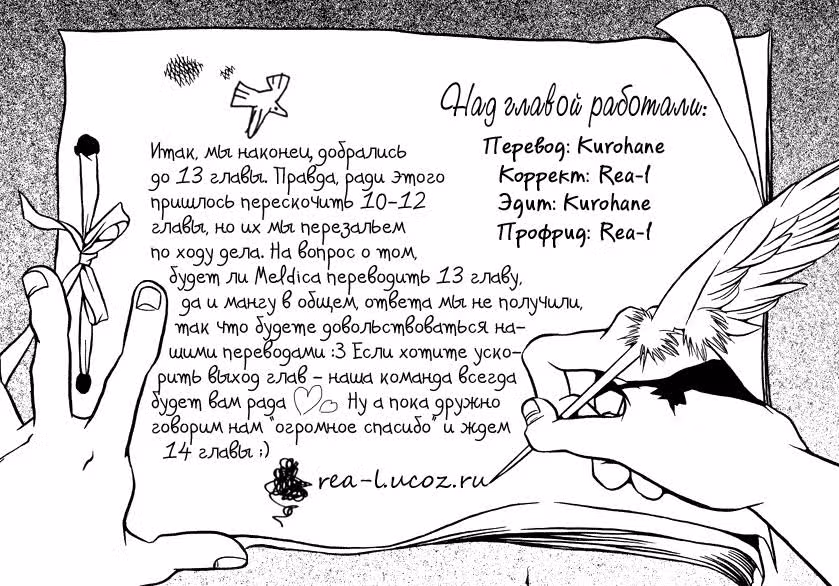 Над главой работали:
Перевод: Kurohane
Коррект: Rea-l
Эдит: Kurohane
Профрид: Rea-l
Итак, мы наконец добрались
до 13 главы. Правда, ради этого
пришлось перескочить 10-12
главы, но их мы перезальем
по ходу дела. На вопрос о том,
будет ли Meldica переводить 13 главу,
да и мангу в общем, ответа мы не получили,
так что будете довольствоваться на-
шими переводами :3 Если хотите уско-
рить выход глав – наша команда всегда
будет вам рада ♡♡ Ну а пока дружно
говорим нам "огромное спасибо" и ждем
14 главы ;)
rea-l.ucoz.ru